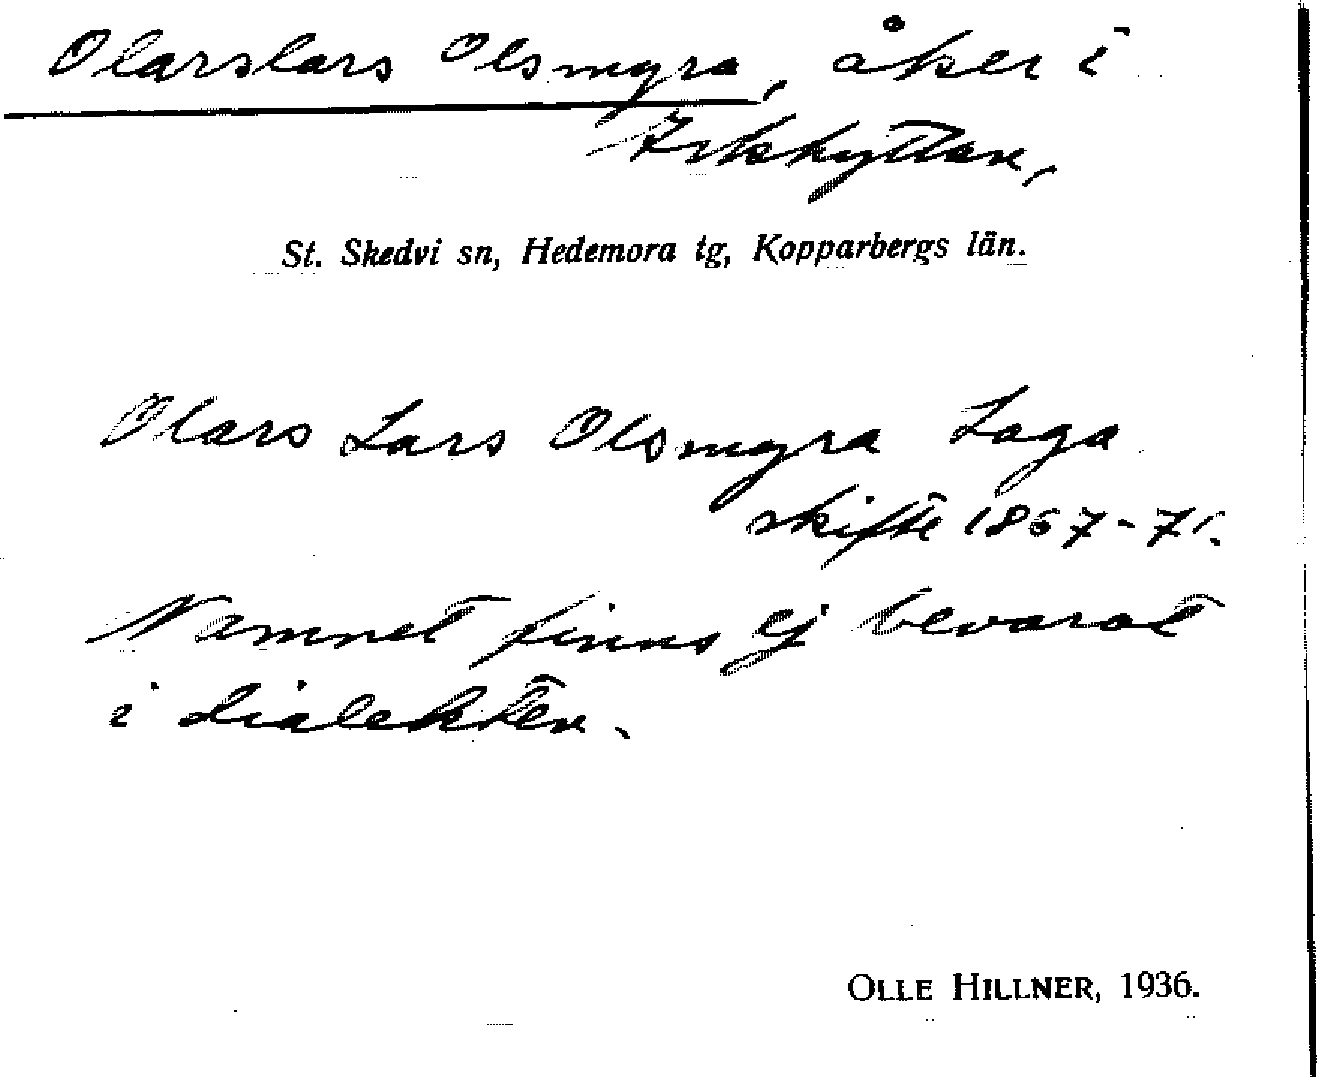 Olarslars Olsmyra, åker i
St. Skedvi sn, Hedemora tg, Kopparbergs län.
Olars Lars Olsmyra Laga
skifte 1867-71.
Namnet finns ej bevarat
i dialekten.
OLLE HILLNER, 1936.